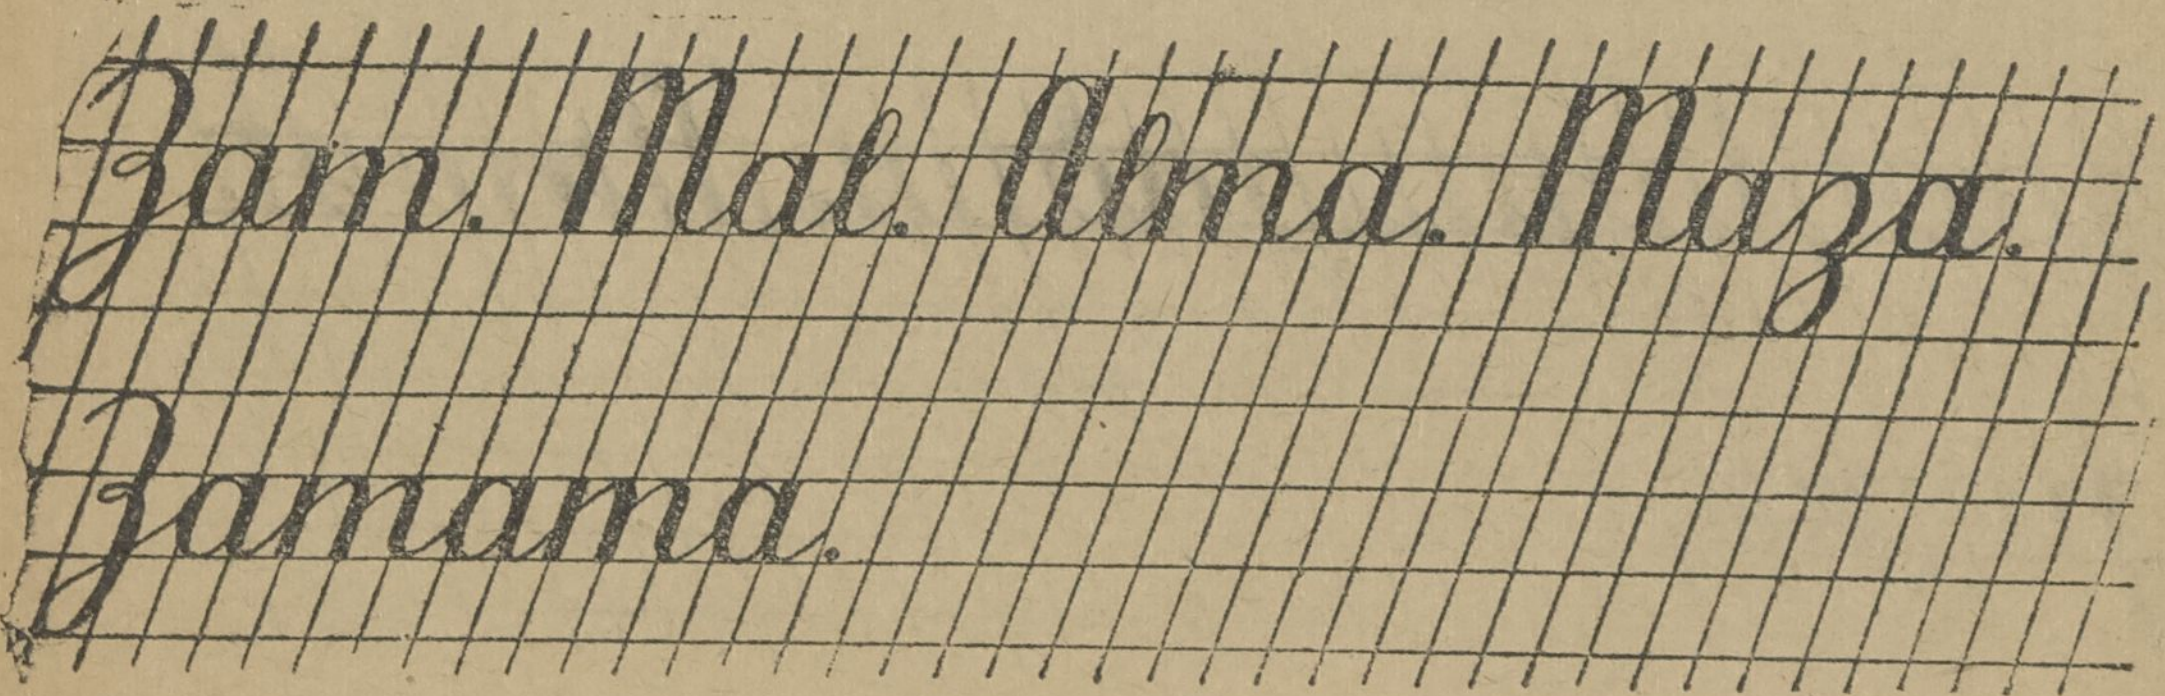 Zam. Mal. Alma. Maza.
Zamama.